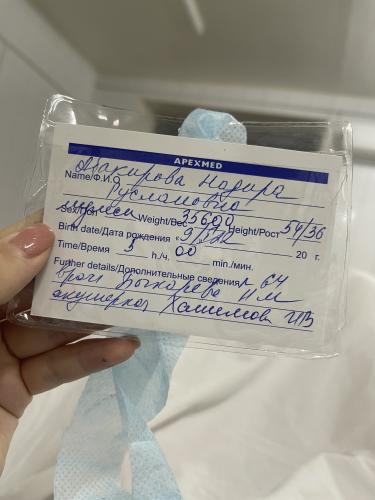 APEXMED
Name/Ф.И.О. Абакирова Надира
Руслановна
Sex/Пол Weight/Вес 35600 Height/Рост 54/36
Birth date/Дата рождения 20 г.
Time/Время 5 h./ч. 00 min./мин.
Further details/Дополнительные сведения
врач
акушерка Халимова